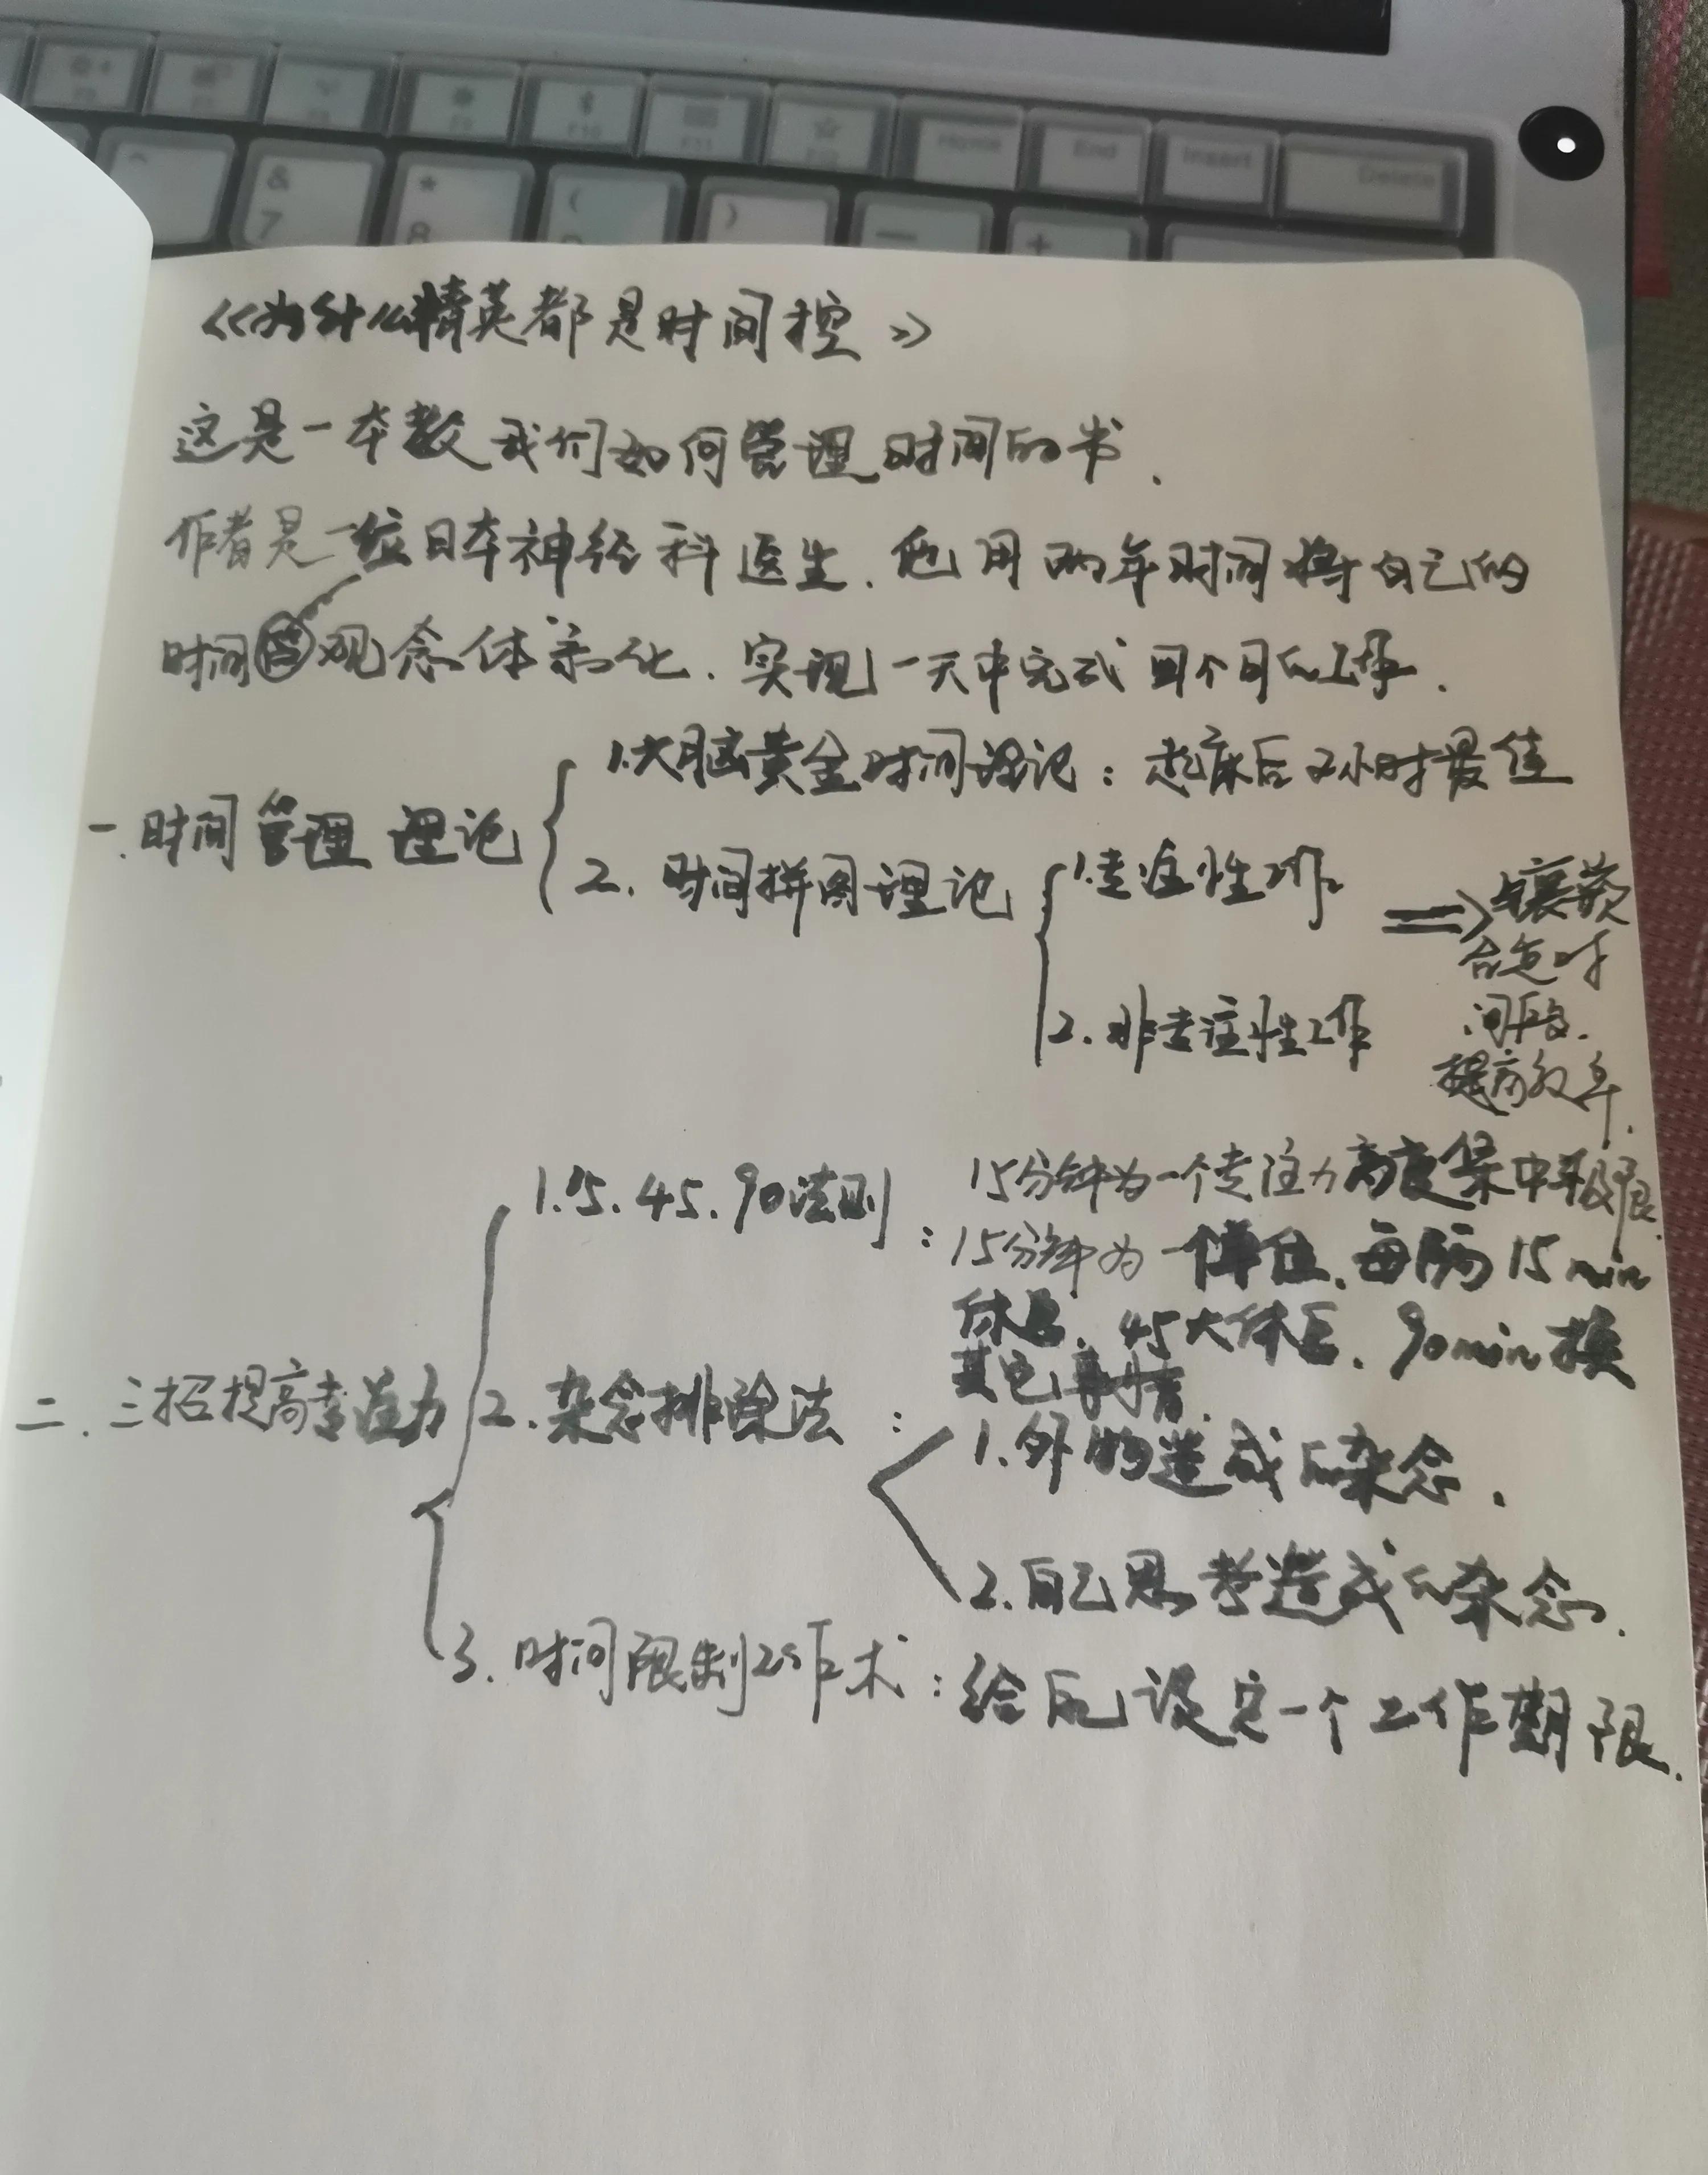 & 7
* 8
(
)
+
Home
End
Insert
Delete
F10
F11
《为什么精英都是时间控》
这是一本教我们如何管理时间的书.
作者是一位日本神经科医生.他用两年时间将自己的
时间观念体系化.实现一天中完成四个月的工作.
一.时间管理理论
1.大脑黄金时间理论:起床后2小时最佳
2.时间拼图理论
1.专注性工作
2.非专注性工作
=>镶嵌
合适时
间段.
提高效率.
二.三招提高专注力
1.15.45.90法则:
15分钟为一个专注力高度集中极限.
15分钟为一个单位.每隔15min
休息.45大休息.90min换
其它事情.
2.杂念排除法:
1.外物造成的杂念.
2.自己思考造成的杂念.
3.时间限制工作术:给自己设定一个工作期限.